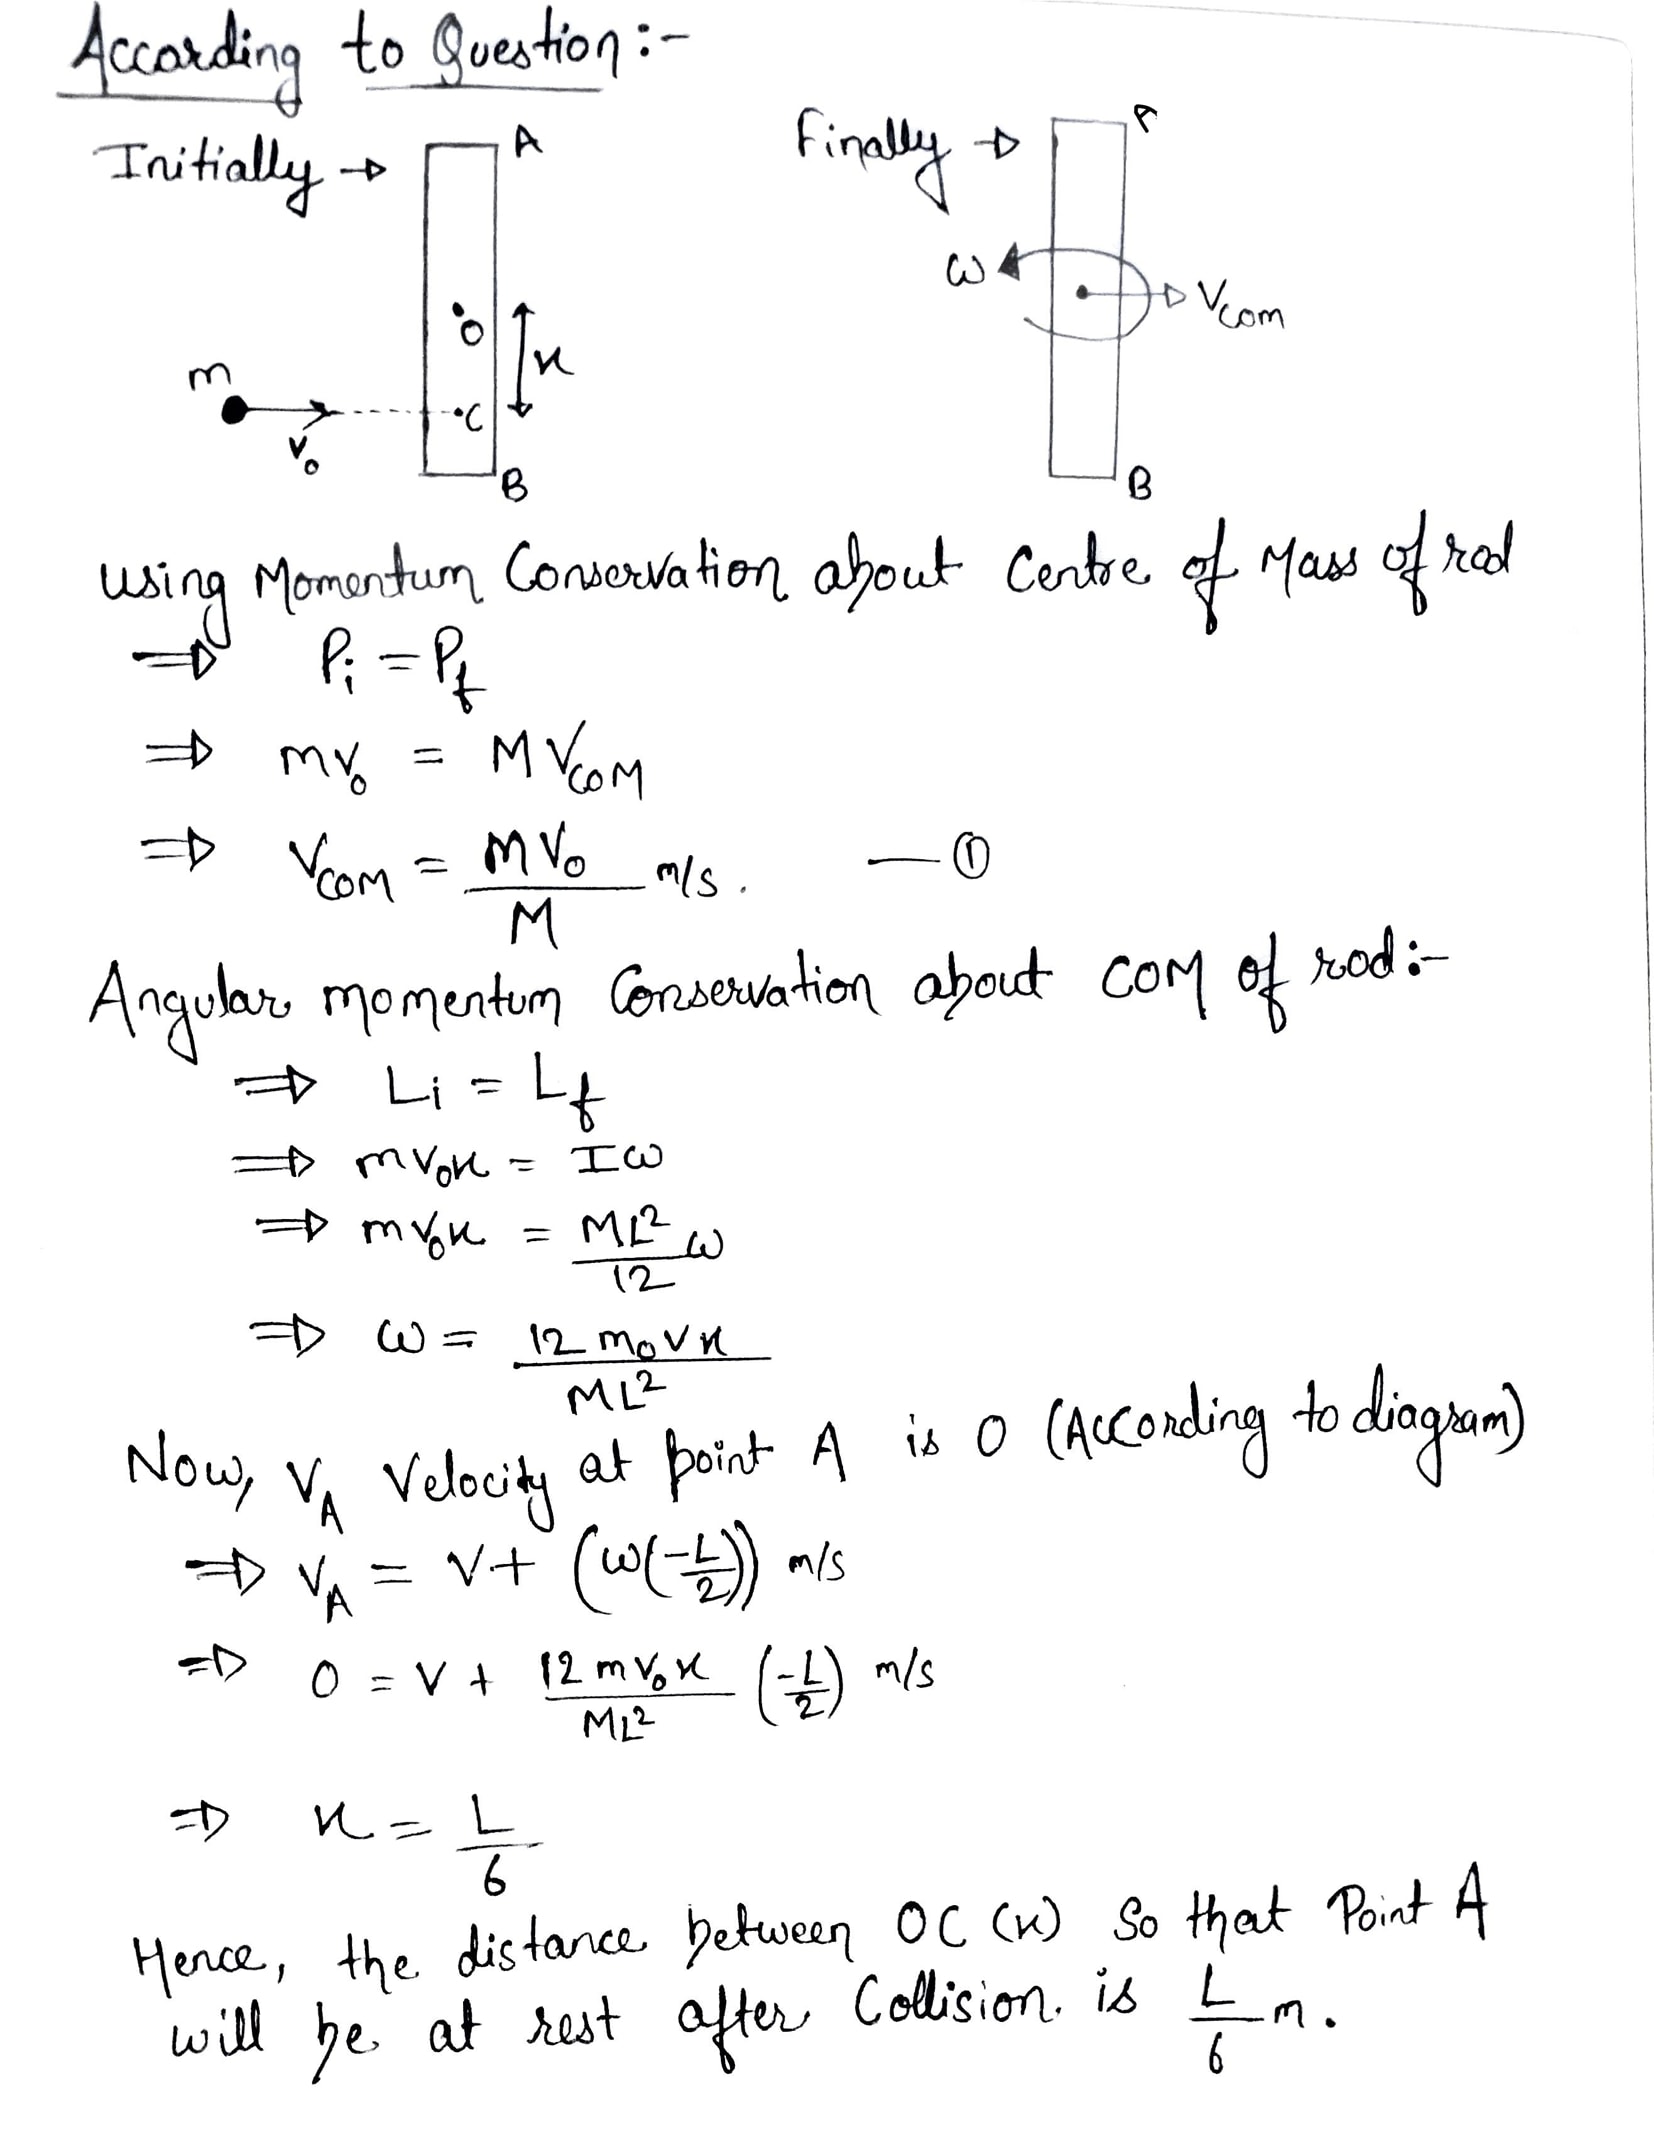 According to Question:-
Initially →
A
O
x
m
v₀
C
B
Finally →
A
ω
V_COM
B
using Momentum Conservation about Centre of Mass of rod
⇒ P_i = P_f
⇒ mv₀ = M V_COM
⇒ V_COM = MV₀/M m/s. —①
Angular momentum Conservation about COM of rod:-
⇒ L_i = L_f
⇒ mv₀x = Iω
⇒ mv₀x = ML²/12 ω
⇒ ω = 12 m₀vx/ML²
Now, V_A Velocity at point A is 0 (According to diagram)
⇒ V_A = V + (ω(-L/2)) m/s
⇒ 0 = V + 12mv₀x/ML² (-L/2) m/s
⇒ x = L/6
Hence, the distance between OC (x) So that Point A
will be at rest after Collision. is L/6 m.